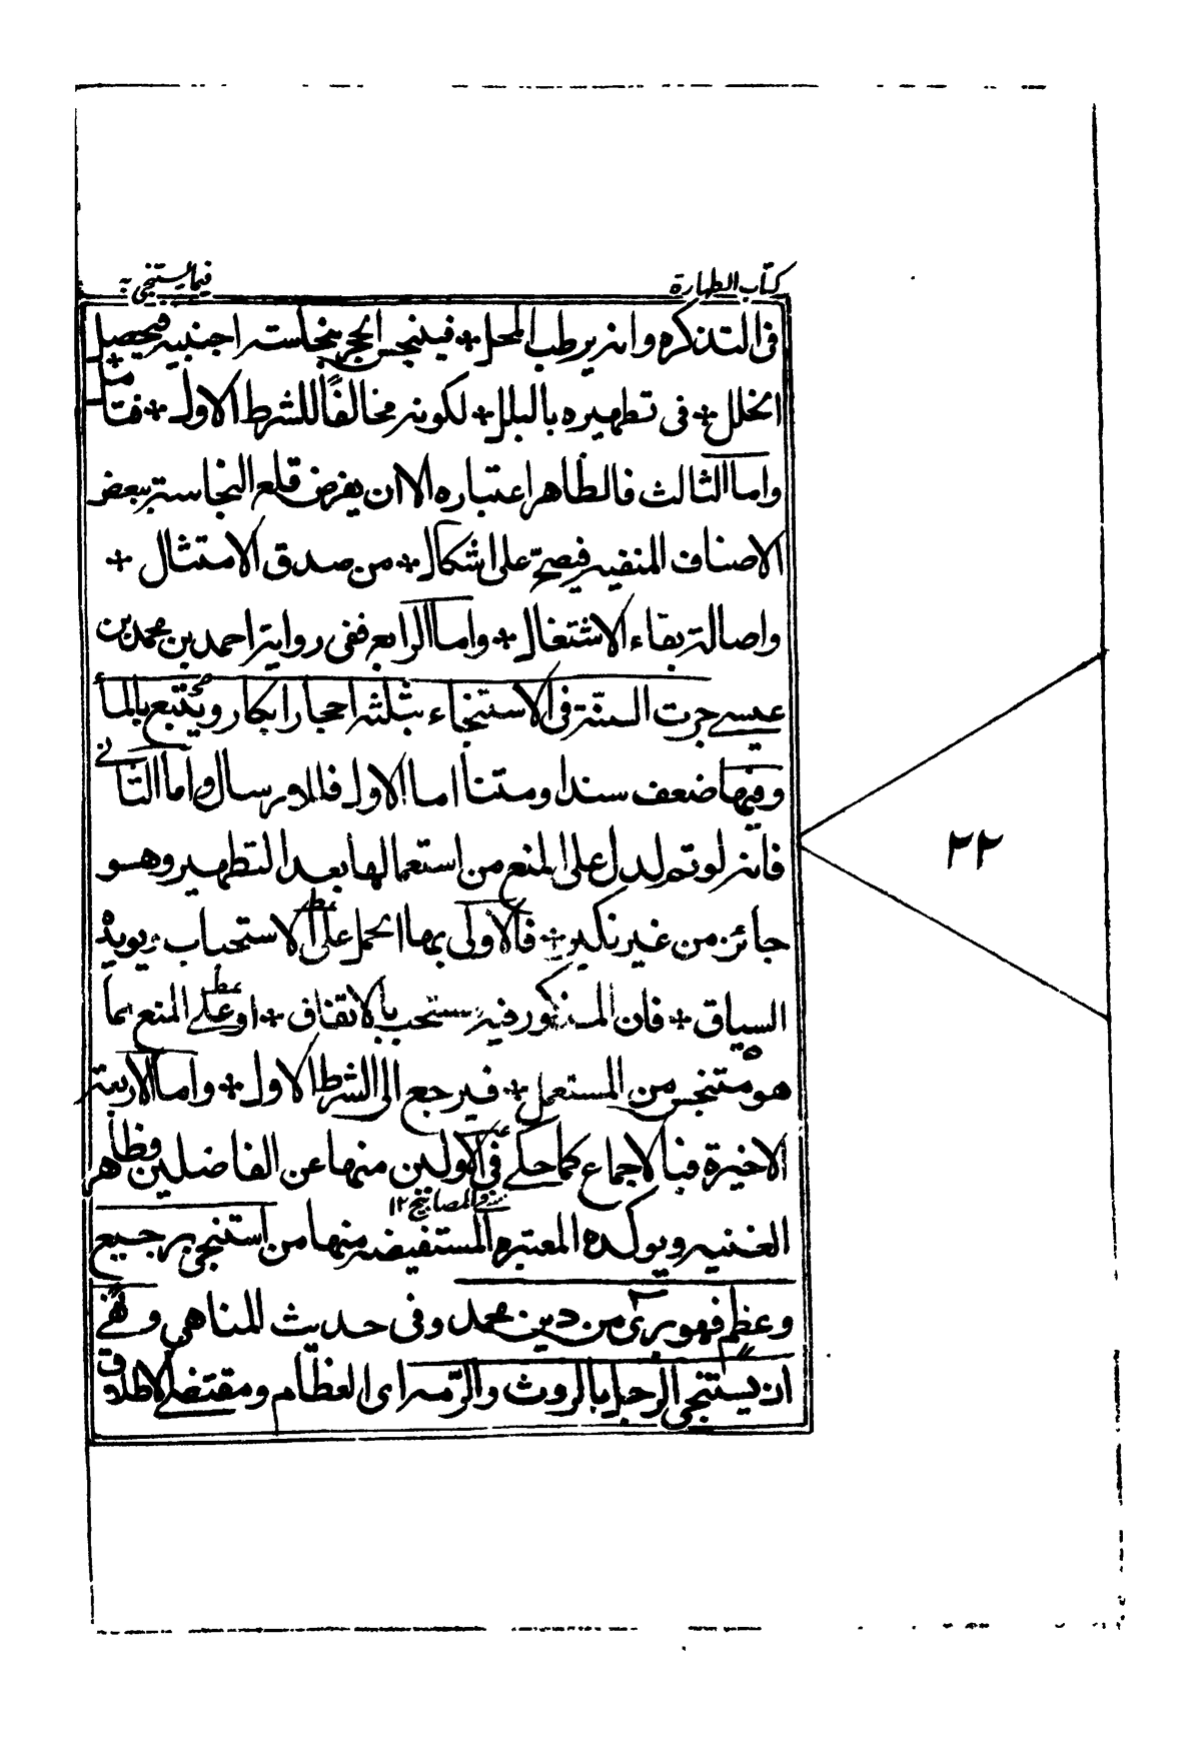 كتاب الطهارة
فيما يستنجى به
فى التذكره وانه يرطب المحل + فينجس الحجر بنجاسته اجنبيه فيحصل
الخلل + فى تطهيره بالبلل + لكونه مخالفًا للشرط الاول + فتامل +
واما الثالث فالظاهر اعتباره الا ان يفرض قلع النجاسته ببعض
الاصناف المنفيه فيصحّ على اشكال + من صدق الامتثال +
واصالته بقاء الاشتغال + واما الرابع ففى روايته احمد بن محمد بن
عيسے جرت السنّته فى الاستنجاء بثلثه احجار ابكار ويتبع بالماء
وفيها ضعف سندا ومتنا اما الاول فللارسال واما الثانے
فانه لو تم لدل على المنع من استعمالها بعد التطهير وهو
جائز من غير نكير + فالاولى بها الحمل على الاستحباب ويويده
السياق + فان المذكور فيه مستحب بالاتفاق + او علے المنع بما
هو متنجس من المستعمل + فيرجع الى الشرط الاول + واما الاربعته
الاخيرة فبالاجماع كما حكے فى الاولين منها عن الفاضلين وظاهر
الغنيه ويوكده المعتبره المستفيضه منها من استنجى برجيع
وعظم فهو برئ من دين محمد وفى حديث المناهى ونهے
ان يستنجى الرجل بالروث والرّمه اى العظام ومقتضے الاطلاق
٢٢